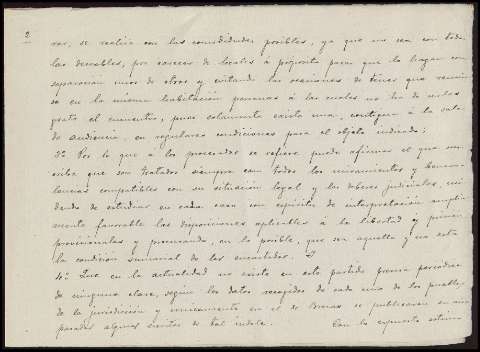 2
se realice con las comodidades posibles, ya que no sea con todas
las deseables, por carecer de locales á propósito para que lo hagan con
separación unos de otros y evitando las ocasiones de tener que reunir
se en la misma habitación personas á las cuales no ha de serles
grato el encuentro, pues solamente existe una, contigua á la sala
de audiencia, en regulares condiciones para el objeto indicado;
3º Por lo que á los procesados se refiere puede afirmar el que
que son tratados siempre con todos los miramientos y
compatibles con su situación legal y los deberes judiciales,
de estudiar en cada caso con espíritu de interpretación
mente favorable las disposiciones aplicables á la libertad y prisión
provisionales y procurando, en lo posible, que sea aquella y no esta
la condición sumarial de los encartados. Y
4º Que en la actualidad no existe en este partido prensa periódica
de ninguna clase, según los datos recogidos de cada uno de los pueblos
de la jurisdicción y unicamente en el de se publicaron en
pasadas algunos de tal índole. Con lo expuesto